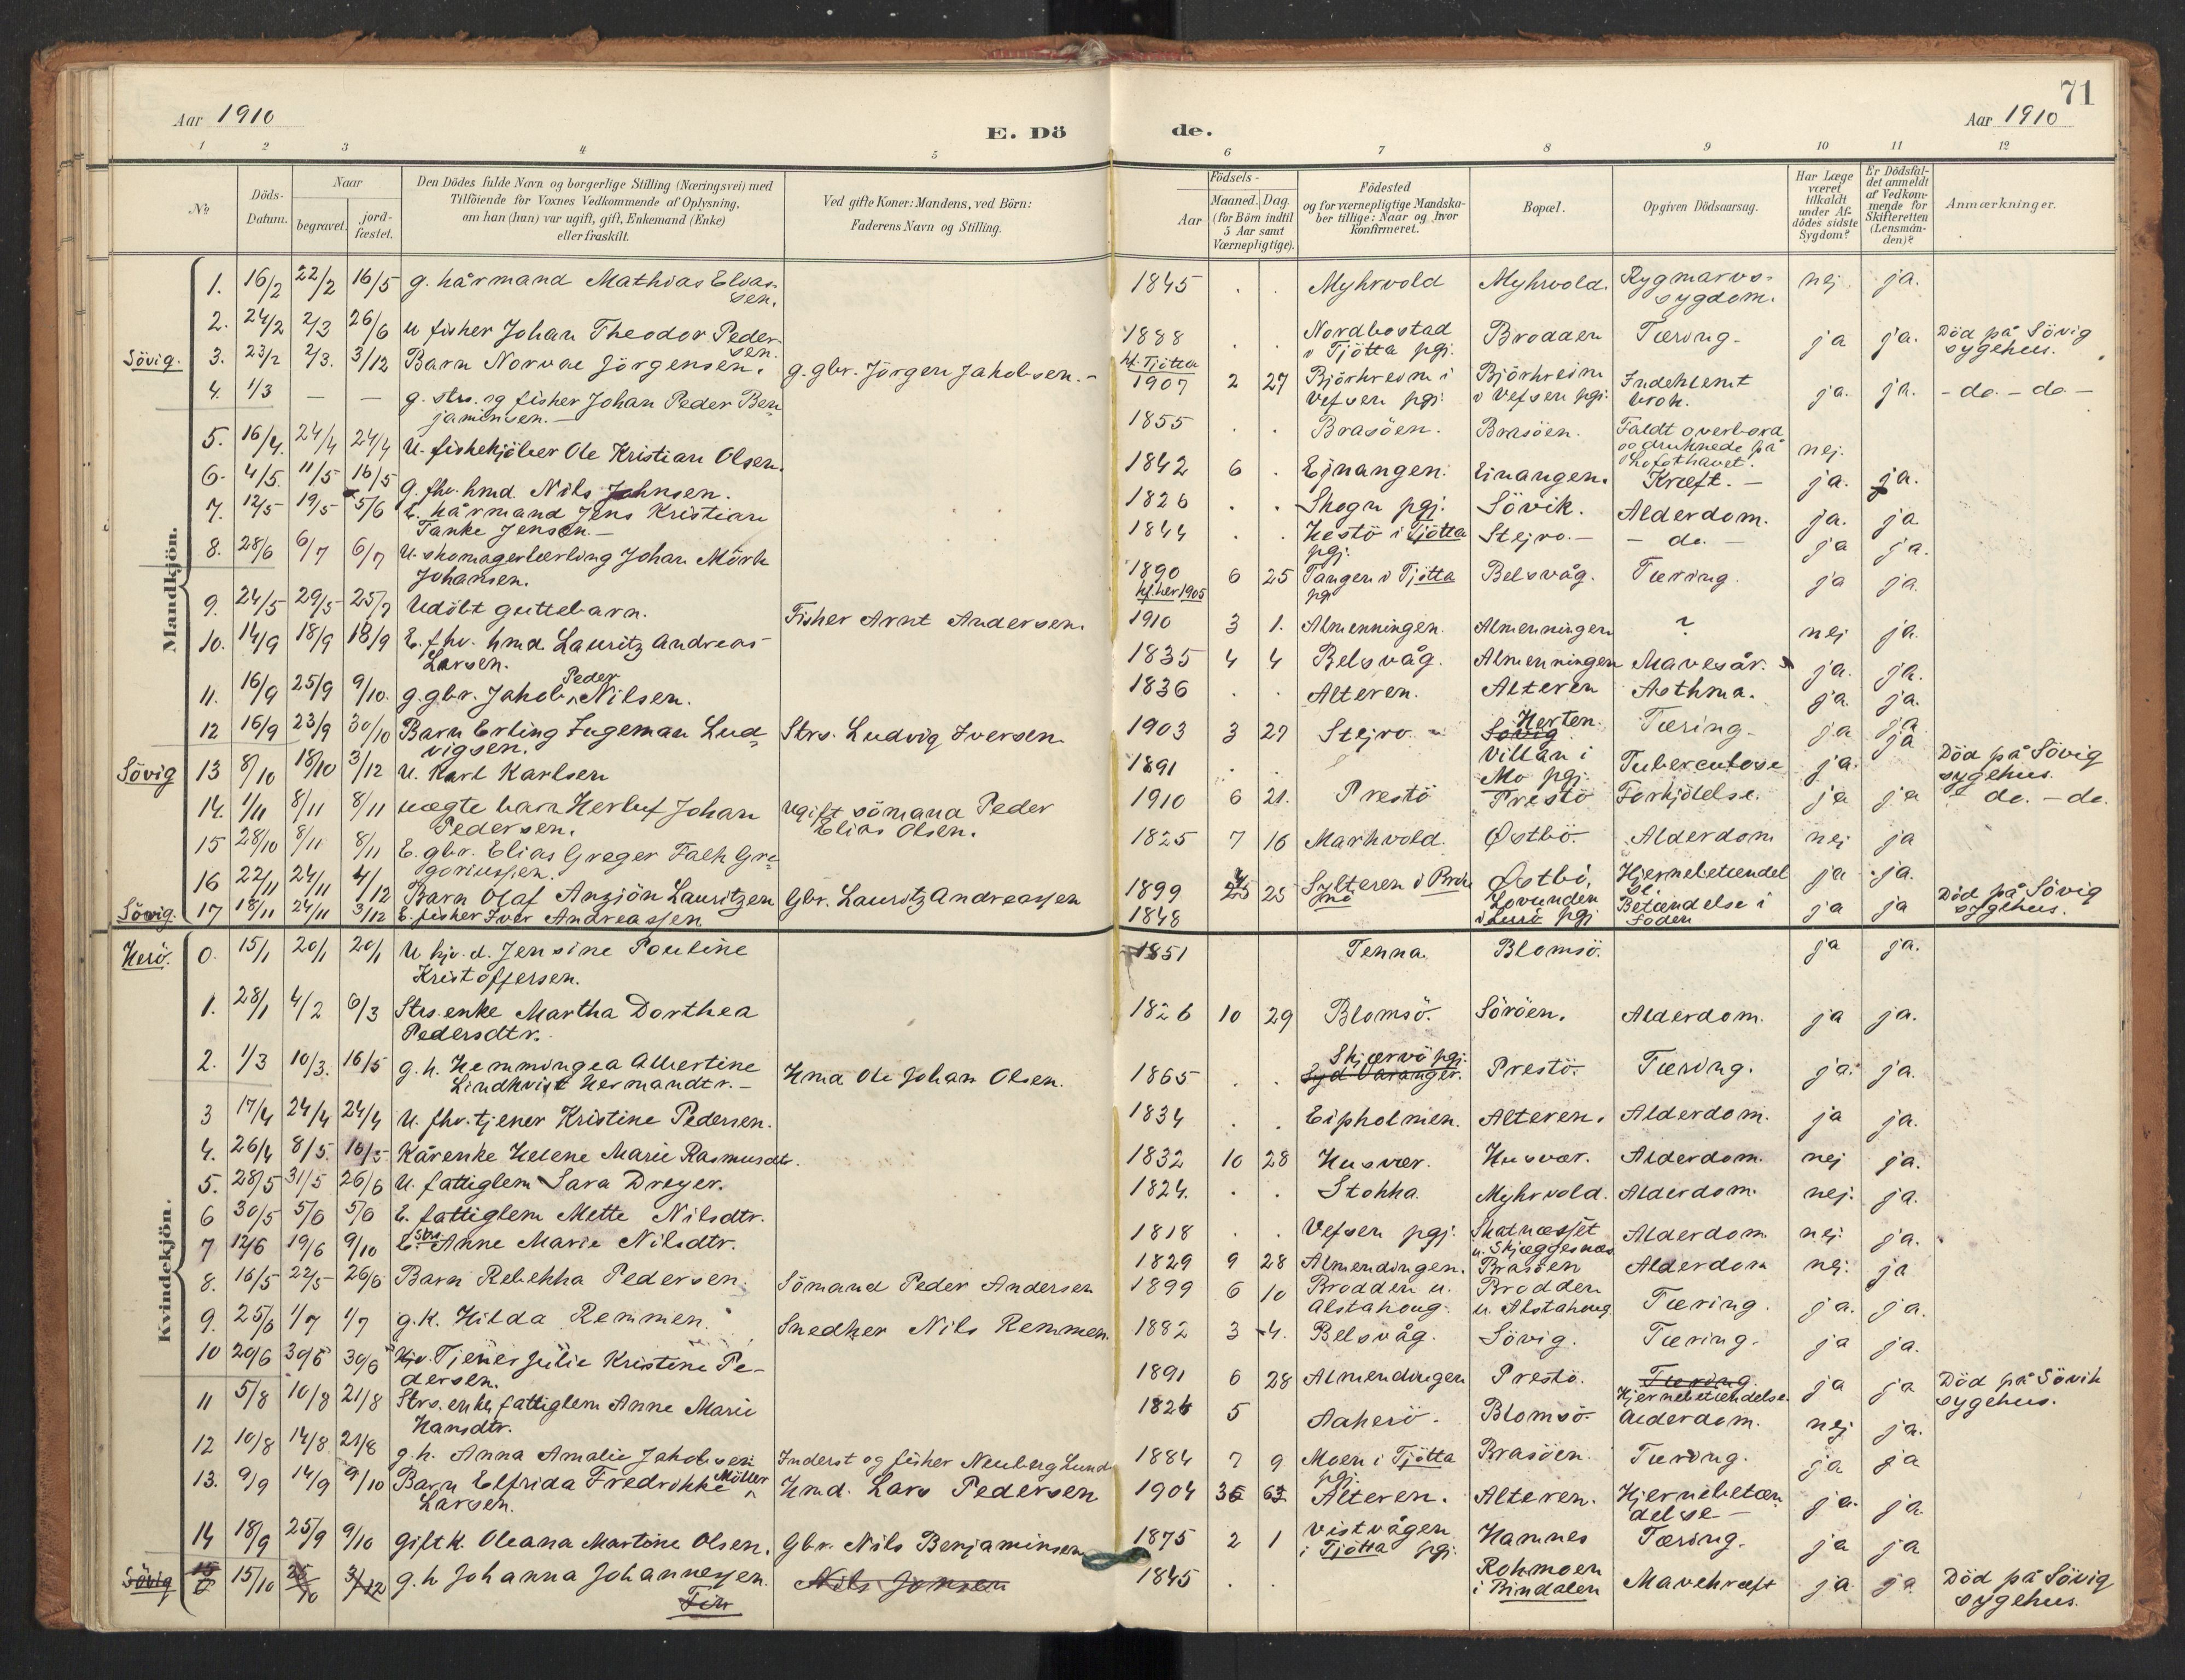 71
Aar 1910
E. Döde.
Aar 1910
1 2 3 4 5 6 7 8 9 10 11 12
No
Döds-Datum.
Naar
begravet.
jord-fæstet.
Den Dödes fulde Navn og borgerlige Stilling (Næringsvei) med
Tilföiende for Voxnes Vedkommende af Oplysning,
om han (hun) var ugift, gift, Enkemand (Enke)
eller fraskilt.
Ved gifte Koner: Mandens, ved Börn:
Faderens Navn og Stilling.
Födsels-
Aar
Maaned. Dag.
(for Börn indtil
5 Aar samt
Værnepligtige).
Födested
og for værnepligtige Mandska-
ber tillige: Naar og hvor
konfirmeret.
Bopæl.
Opgiven Dödsaarsag.
Har Læge
været
tilkaldt
under Af-
dödes sidste
Sygdom?
Er Dödsfal-
det anmeldt
af Vedkom-
mende for
Skifteretten
(Lensman-
den)?
Anmærkninger.
Mandkjön.
1. 16/2 22/2 16/5 g. kårmand Mathias Elias-
sen. 1845 . . Myhrvold Myhrvold. Rygmarvs-
sygdom. nej ja.
2. 24/2 2/3 26/6 u fisker Johan Theodor Peder-
sen. 1888 . . Nordbostad
i Tjötta pgj. Brodden Tæring. ja ja. Död på Sövig
sygehus.
kf. Tjötta
Sövig. 3. 23/2 2/3. 3/12 Barn Norval Jörgensen. g. gbr. Jörgen Jakobsen. 1907 2 27 Björkheim i
Vefsen pgj. Björkheim
i Vefsen pgj. Indeklemt
brok. ja. ja. - do. - do -
4. 1/3 — — g. strs. og fisker Johan Peder Ben-
jaminsen. 1855 . . Brasöen. Brasöen. Faldt overbord
og druknede på
Lofothavet. nej.
5. 16/4. 24/4 24/4 U. fiskekjöber Ole Kristian Olsen. 1842 6 . Ejnangen. Einangen. Kræft. ja. ja.
6. 4/5. 11/5 16/5 g. fhv. hmd. Nils Johnsen. 1826 . . Skogn pgj. Sövik. Alderdom. ja. ja
7. 12/5 19/5 5/6 E. kårmand Jens Kristian
Tanke Jensen. 1844 . . Hestö i Tjötta
pgj. Stejro. - do. - ja ja.
8. 28/6 6/7 6/7 U. skomagerlærling Johan Mörk
Johansen. 1890 6 25 Tangen i Tjötta
pgj Belsvåg. Tæring. ja ja.
kf. her 1905
9. 24/5 29/5 25/7 Udöbt guttebarn. Fisker Arnt Andersen. 1910 3 1. Almenningen. Almenningen ? nej ja.
10. 14/9 18/9 18/9 E. fhv. hmd. Lauritz Andreas
Larsen. 1835 4 4 Belsvåg. Almenningen Mavesår. ja. ja.
11. 16/9 25/9 9/10. g. gbr. Jakob Peder Nilsen. 1836 . . Alteren. Alteren Asthma. ja. ja.
12 16/9 23/9 30/10 Barn Erling Ingeman Lud-
vigsen. Strs. Ludvig Iversen 1903 3 27 Stejro Herten.
Sövig Tæring. ja ja
Sövig 13 8/10 18/10 3/12 U. Karl Karlsen 1891 . . Villan i
Mo pgj. Tuberculose ja. ja Död på Sövig
sygehus.
14. 1/11 8/11 8/11 uægte barn Herluf Johan
Pedersen. Ugift sömand Peder
Elias Olsen. 1910 6 21. Prestö Prestö Forkjölelse. ja ja do. - do.
15 28/10 8/11 8/11 E. gbr. Elias Greger Falk Gre-
goriussen. 1825 7 16 Markvold. Østbö. Alderdom nej ja
16 22/11 24/11 4/12 Barn Olaf Ansjön Lauritzen Gbr. Lauritz Andreassen 1899 25 Sylteren i Brön-
nö Østbö, Hjernebetændel-
se. ja ja.
Sövig. 17 18/11 24/11 3/12 E. fisker Iver Andreassen 1848 Lovunden
i Lurö pgj Betændelse i
foden ja ja Död på Sövig
sygehus.
Kvindekjön.
Herö. 0. 15/1 20/1 20/1 U hjv. d. Jensine Pauline
Kristoffersen. 1851 Tenna. Blomsö. ja ja.
1. 28/1 4/2 6/3 Strs. enke Martha Dorthea
Pedersdtr. 1826 10 29 Blomsö. Söröen. Alderdom. ja ja.
2. 1/3 10/3. 16/5 g. k. Hemmingea Albertine
Lindkvist Hermandtr. Hmd Ole Johan Olsen. 1865 . . Skjærvö pgj.
Syd Varanger. Prestö. Tæring. ja. ja.
3 17/4 24/4 24/4 U. fhv. tjener Kristine Pedersen. 1834 . . Eipholmen. Alteren. Alderdom. ja ja.
4. 26/4 8/5. 16/5 Kårenke Helene Marie Rasmusdtr. 1832 10 28 Husvær. Husvær. Alderdom. nej ja.
5. 28/5 31/5 26/6 U. fattiglem Sara Dreyer. 1824. . . Stokka. Myhrvold. Alderdom. nej. ja.
6 30/5 5/6 5/6 E. fattiglem Mette Nilsdtr. 1818 . . Vefsen pgj. Skatnæsset
u. Skjæggesnæs Alderdom. nej ja.
7 12/6 19/6 9/10 E. Strs. Anne Marie Nilsdtr. 1829 9 28 Almendingen. Brasöen Alderdom nej. ja
8. 16/5 22/5 26/6 Barn Rebekka Pedersen. Sömand Peder Andersen 1899 6 10 Brodden u.
Alstahoug. Brodden
u. Alstahoug Tæring. ja. ja.
9. 25/6 1/7 1/7 g. k. Hilda Remmen. Snedker Nils Remmen. 1882 3 4. Belsvåg. Sövig. Tæring. ja ja.
10 20/6 30/6 30/6 Hjv. Tjener Julie Kristine Pe-
dersen. 1891 6 28 Almendingen Prestö. Tæring.
Hjernebetændelse. ja ja Död på Sövik
sygehus.
11 5/8 10/8 21/8 Strs. enke, fattiglem Anne Marie
Hansdtr. 1826 5 Aakerö. Blomsö. Alderdom. nej ja.
12 10/8 14/8. 21/8 g. k. Anna Amalie Jakobsen Inderst og fisker Neuberg Lund 1884 7 9 Moen i Tjötta
pgj. Brasöen. Tæring. ja ja
13. 9/9 14/9 9/10 Barn Elfrida Fredrikke Möller
Larsen. Hmd. Lars Pedersen 1904 Alteren. Alteren. Hjernebetæn-
delse ja. ja.
14 18/9 25/9 9/10 Gift k. Oleana Martine Olsen. Gbr. Nils Benjaminsen 1875 2 1 Vistvågen
i Tjötta pgj. Hamnes Tæring. ja ja
Sövig 15 15/10 3/12 g. k Johanna Johannessen. Nils Jonsen 1845 . . Rohmoen
i Bindalen Mavekræft ja. ja. Död på Sövig
sygehus.